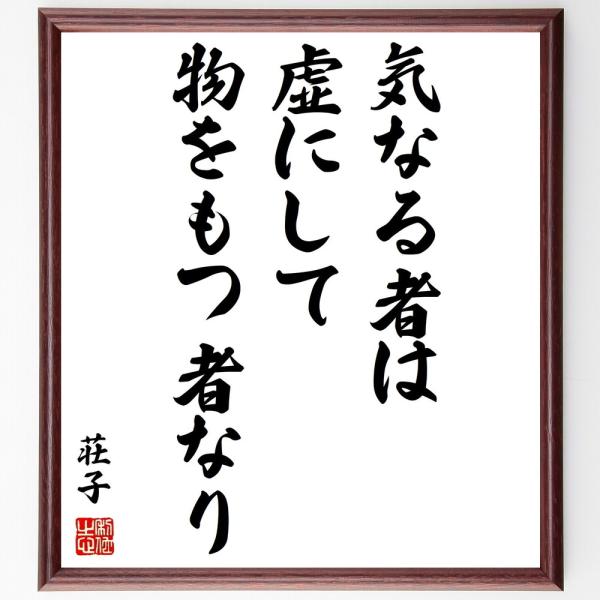 気なる者は
虚にして
物をもつ者なり
荘子